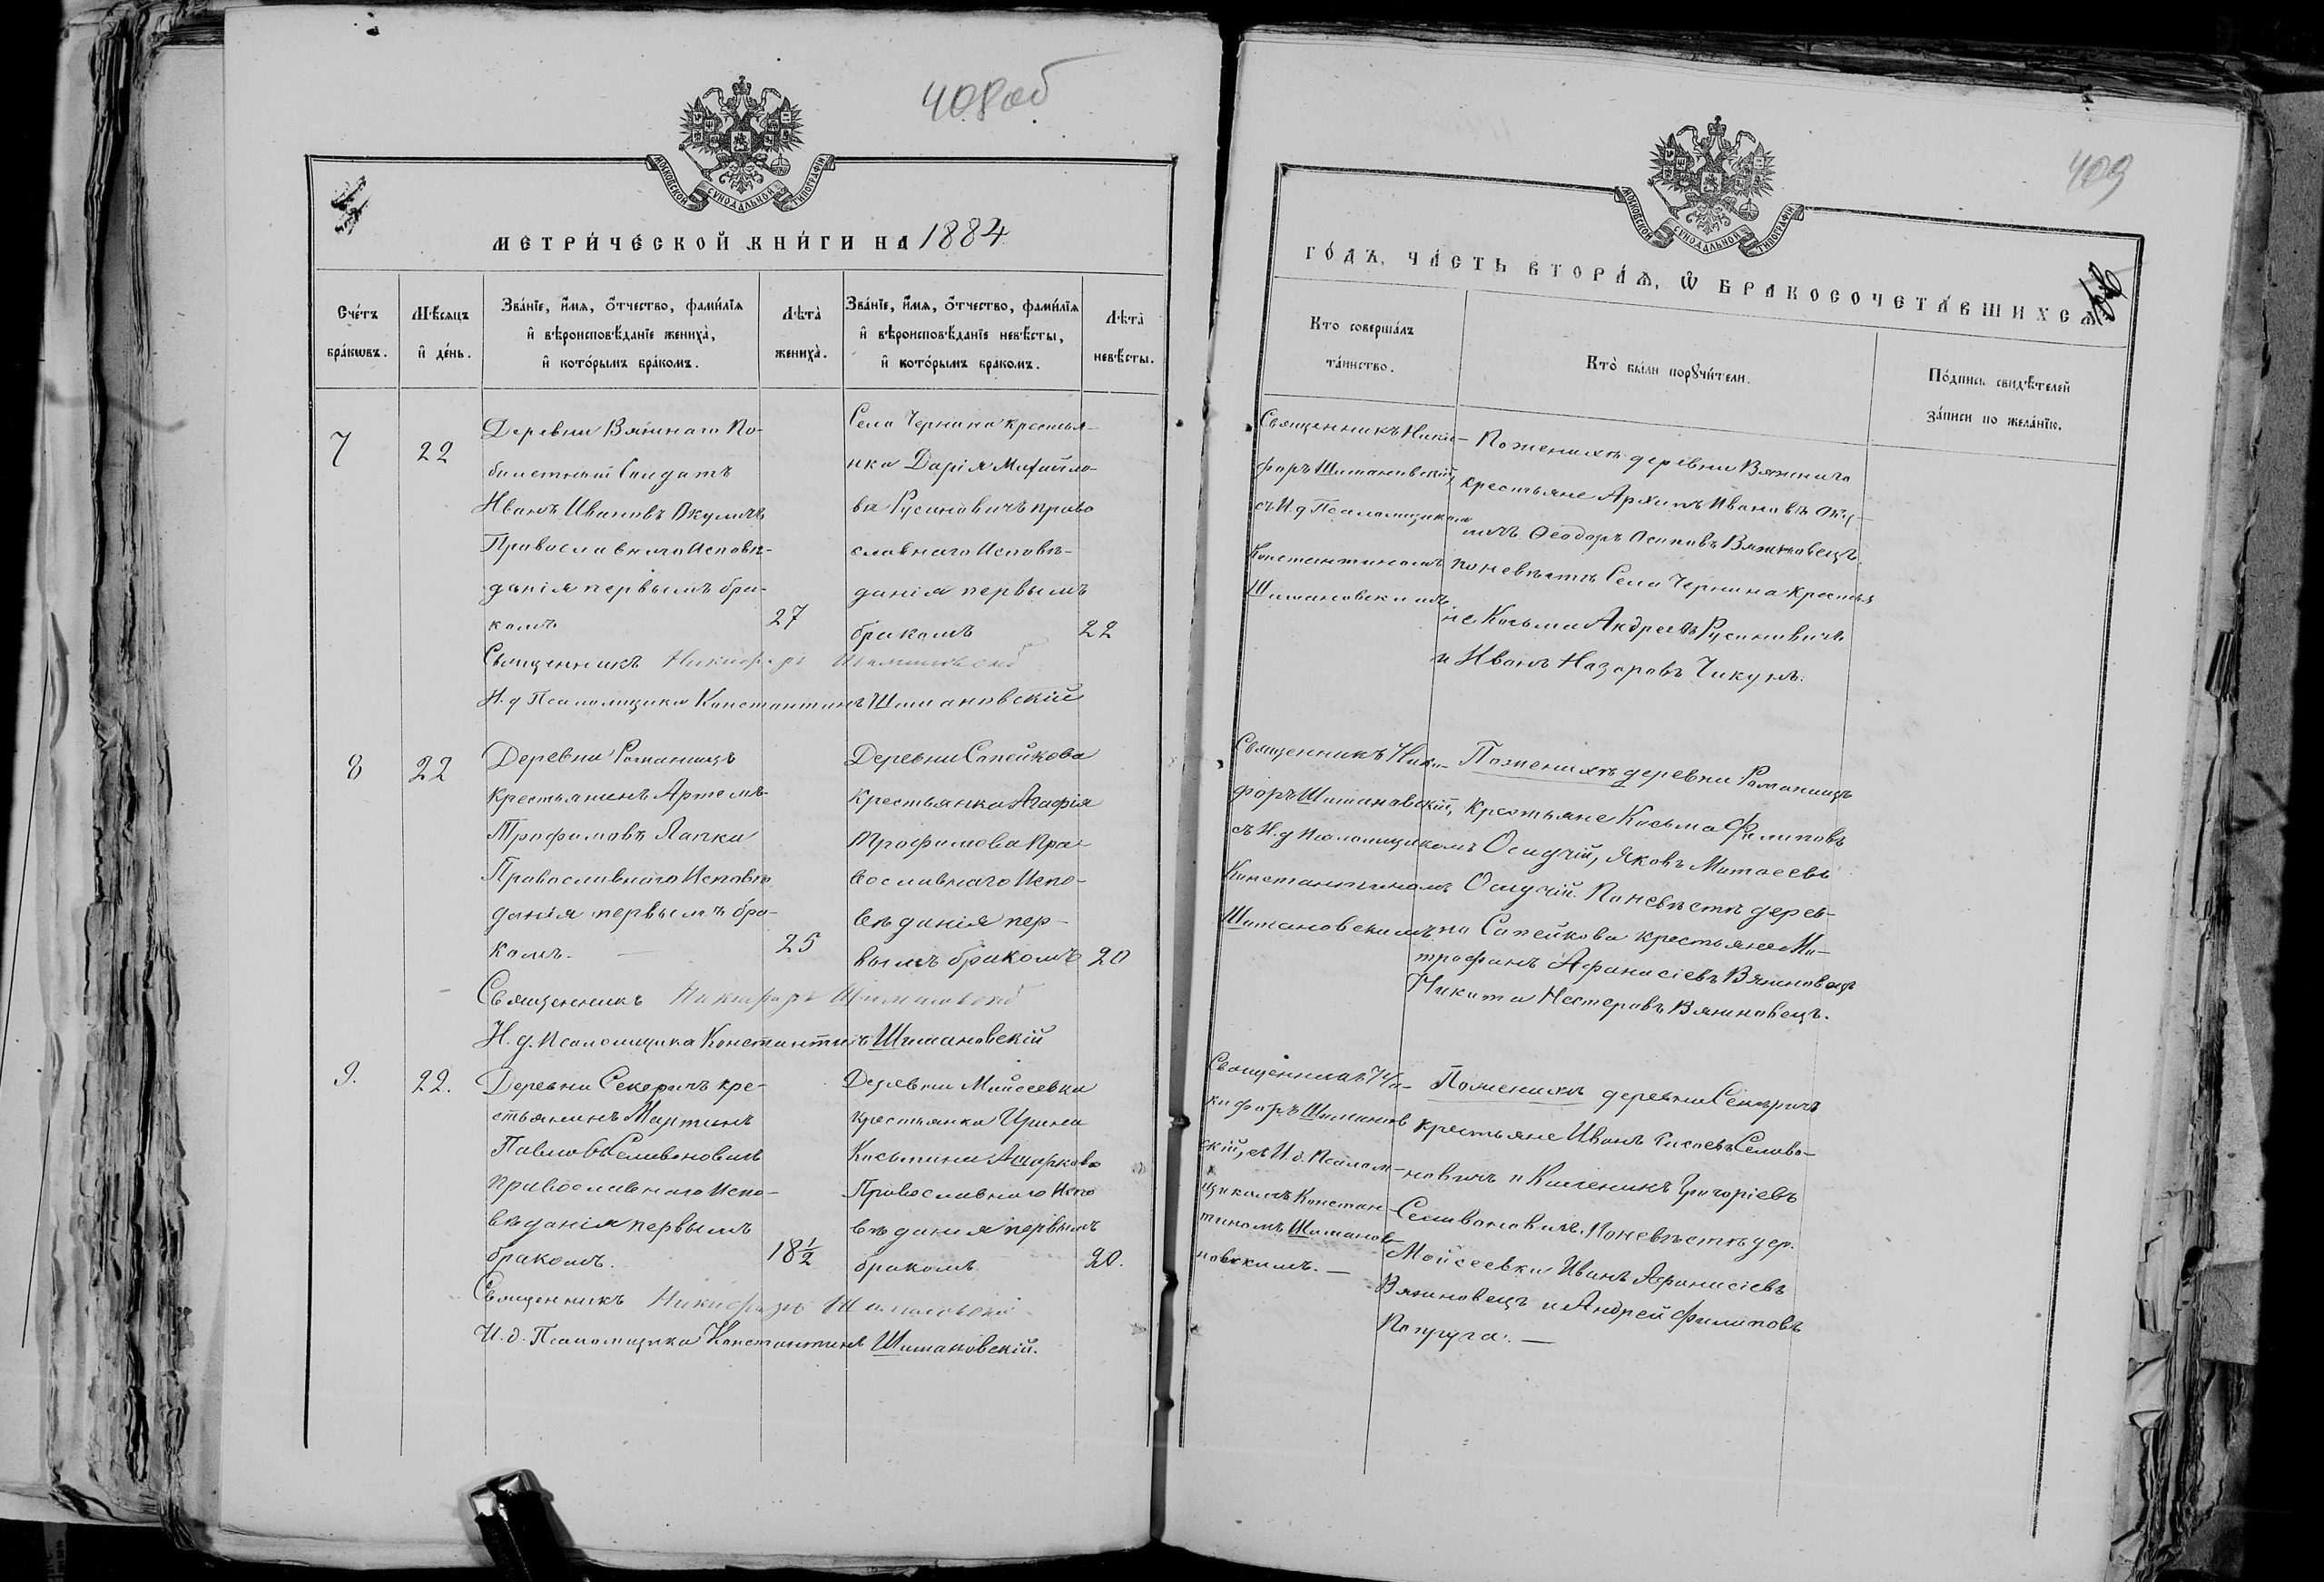 408 об
МОСКОВСКОЙ СѴНОДАЛЬНОЙ ТИПОГРАФІИ
МЕТРИ́ЧЕСКОЙ КНИ́ГИ НА 1884
Сче́тъ бра́кωвъ.
Мѣ́сяцъ и҆ де́нь.
Зва́нїе, и҆́мѧ, ѻ҆́тчество, фами́лїѧ
и҆ вѣроисповѣ́данїе жениха̀,
и҆ кото́рымъ бра́комъ.
Лѣта̀ жениха̀.
Зва́нїе, и҆́мѧ, ѻ҆́тчество, фами́лїѧ
и҆ вѣроисповѣ́данїе невѣ́сты,
и҆ кото́рымъ бра́комъ.
Лѣта̀ невѣ́сты.
7
22
Деревни Вяжнаго По-
билетный Солдатъ
Иванъ Ивановъ Акуличъ
Православнаго Исповѣ-
данія первымъ бра-
комъ
27
Села Чернина крестья-
нка Дарія Михайло-
ва Русиновичъ право
славнаго Исповѣ-
данія первымъ
бракомъ
22
Священникъ Никифоръ Шимановскій
И. д Псаломщика Константинъ Шимановскій
8
22
Деревни Романищъ
Крестьянинъ Артемъ
Трофимовъ Лапка
Православнаго Исповѣ
данія первымъ бра-
комъ.
25
Деревни Сапейкова
Крестьянка Агафія
Трофимова Пра-
вославнаго Испо-
вѣданія пер-
вымъ бракомъ
20
Священникъ Никифоръ Шимановскій
И. д. Псаломщика Константинъ Шимановскій
9.
22.
Деревни Секеричъ кре-
стьянинъ Мартинъ
Павловъ Селивоновичъ
православнаго Испо-
вѣданія первымъ
бракомъ.
18 1/2
Деревни Мойсеевки
крестьянка Ирина
Косьмина Ашаркова
Православнаго Испо
вѣданія первымъ
бракомъ
20.
Священникъ Никифоръ Шимановскій
И. д. Псаломщика Константинъ Шимановскій.
409
МОСКОВСКОЙ СѴНОДАЛЬНОЙ ТИПОГРАФІИ
ГО́ДЪ, ЧА́СТЬ ВТОРА́Ѧ, Ѡ҆ БРАКОСОЧЕТА́ВШИХСѦ.
Кто соверша́лъ
та́инство.
Кто̀ бы́ли порꙋчи́тели.
По́дпись свидѣ́телей
за́писи по жела́нїю.
Священникъ Ники-
форъ Шимановскій,
съ И. д Псаломщикомъ
Константиномъ
Шимановскимъ
По женихѣ деревни Вяжнаго
крестьяне Архипъ Ивановъ Аку-
личъ Ѳеодоръ Осиповъ Вяжновецъ.
по невѣстѣ Села Чернина крестья
не Косьма Андреевъ Русиновичъ
и Иванъ Назаровъ Чикунъ.
Священникъ Ники-
форъ Шимановскій,
съ И. д псаломщикомъ
Константиномъ
Шимановскимъ
По женихѣ деревни Романищъ
Крестьяне Косьма Филиповъ
Осидчій, Яковъ Матѳеевъ
Осидчій. По невѣстѣ дерев-
ни Сапейкова крестьяне Ми-
трофанъ Афанасіевъ Вяжновецъ
Никита Нестеровъ Вяжновецъ.
Священникъ Ни-
кифоръ Шиманов
скій, съ И. д. Псалом-
щикомъ Констан
тиномъ Шиманов
новскимъ.
По женихѣ деревни Секеричъ
крестьяне Иванъ Селиво-
новичъ и Григоріевъ
Селивоновичъ. По невѣстѣ дер.
Мойсеевки Иванъ Афанасіевъ
Вяжновецъ и Андрей Филиповъ
Попруга.